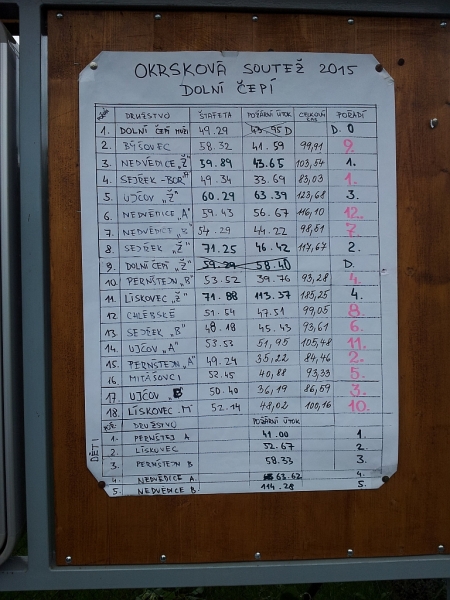 OKRSKOVÁ SOUTEŽ 2015
DOLNÍ ČEPÍ
DRUŽSTVO ŠTAFETA POŽÁRNÍ ÚTOK CELKOVÝ ČAS POŘADÍ
1. DOLNÍ ČEPÍ MUŽI 49.29 43.95 D D. 0
2. BÝŠOVEC 58.32 41.59 99,91 9.
3. NEDVĚDICE "Ž" 59.89 43.65 103,54 1.
4. SEJŘEK-BOR"A" 49.34 33.69 83,03 1.
5. UJČOV "Ž" 60.29 63.39 123,68 3.
6. NEDVĚDICE "A" 59.43 56.67 116,10 12.
7. NEDVĚDICE "B" 54.29 44.22 98,51 7.
8. SEJŘEK "Ž" 71.25 46.42 117,67 2.
9. DOLNÍ ČEPÍ "Ž" 59.29 58.40 D.
10. PERNŠTEJN "B" 53.52 39.76 93,28 4.
11. LÍSKOVEC "Ž" 71.88 113.37 185,25 4.
12 CHLÉBSKÉ 51.54 47.51 99,05 8.
13 SEJŘEK "B" 48.18 45.43 93,61 6.
14. UJČOV "A" 53.53 51,95 105,48 11.
15. PERNŠTEJN "A" 49.24 35,22 84,46 2.
16. MITÁŠOVCI 52.45 40,88 93,33 5.
17. UJČOV "B" 50.40 36,19 86,59 3.
18. LÍSKOVEC "M" 52.14 48,02 100,16 10.
DĚTI
DRUŽSTVO POŽÁRNÍ ÚTOK
1. PERNŠTEJ A 41.00 1.
2. LÍSKOVEC 52.67 2.
3. PERNŠTEJN B 58.33 3.
4. NEDVĚDICE A. 63.62 4.
5. NEDVEDICE B. 114.28 5.